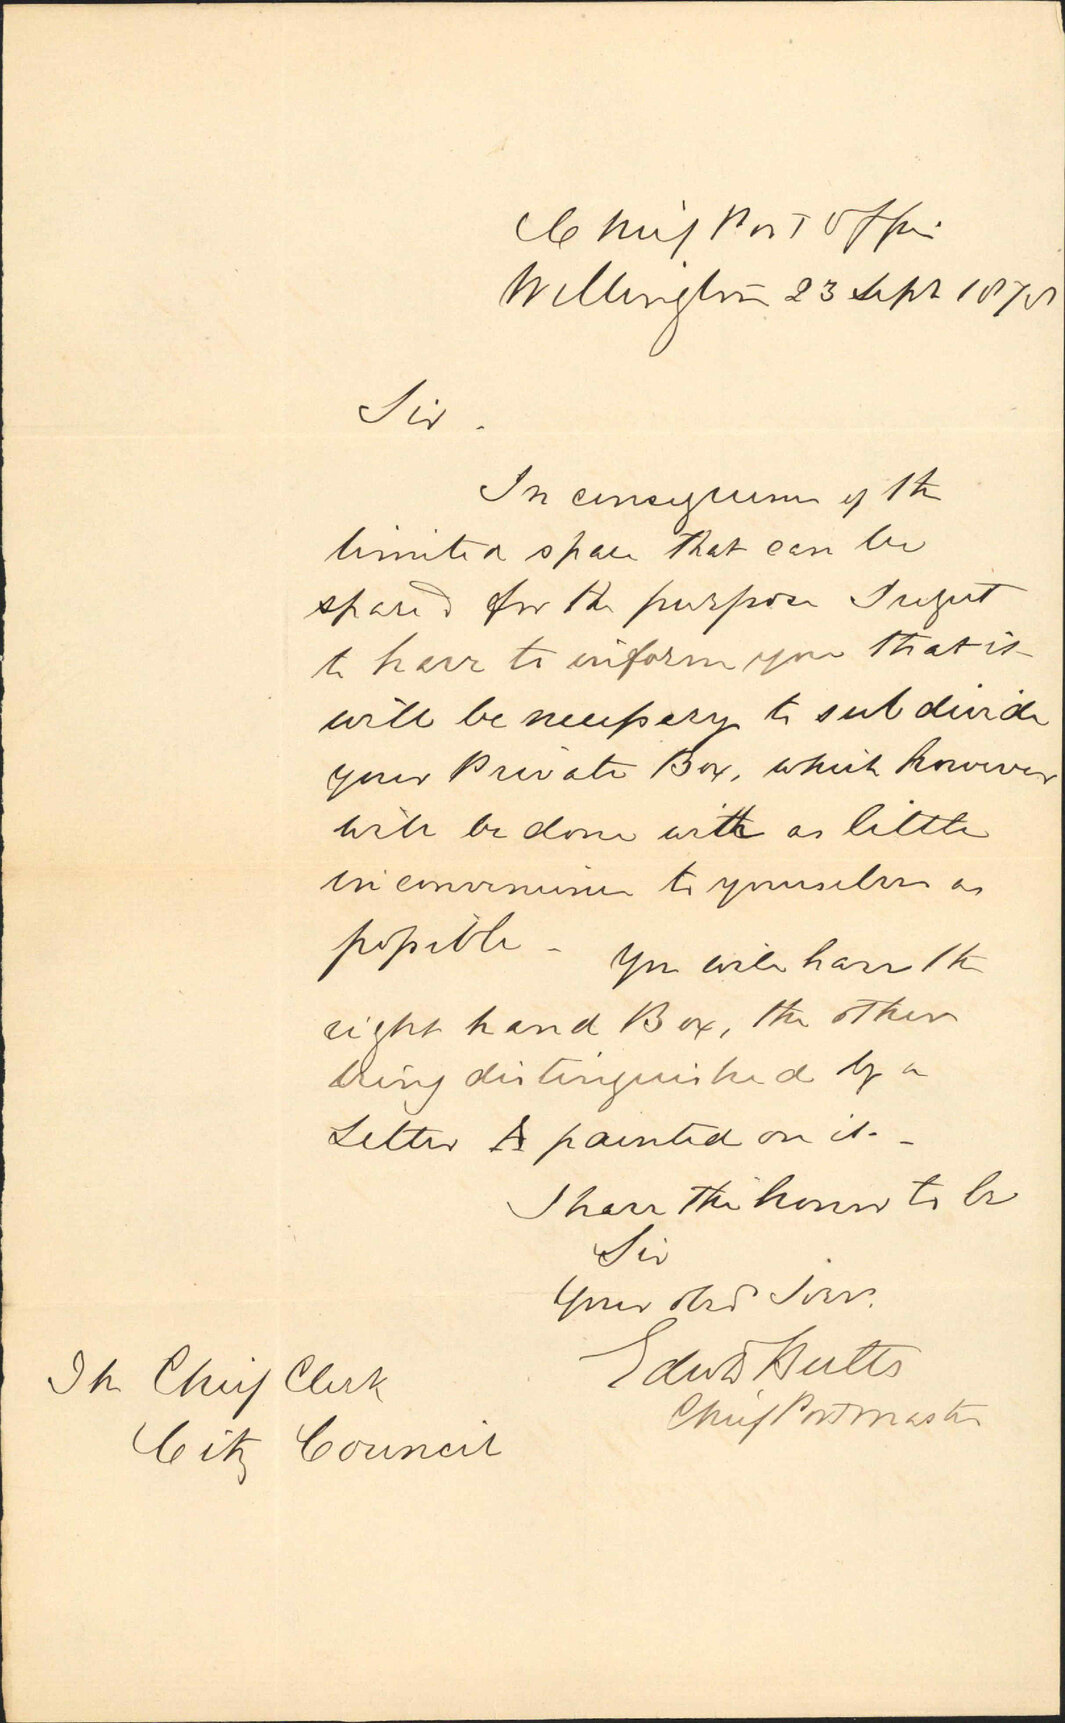 Chief Post Office
Wellington 23 Sept 1878
Sir.
In consequence of the
limited space that can be
spared for the purpose I regret
to have to inform you that it
will be necessary to sub divide
your Private Box, which however
will be done with as little
inconvenience to yourselves as
possible - You will have the
right hand Box, the other
being distinguished by a
Letter A painted on it. -
I have the honor to be
Sir
Your obed Serv.
Edwd Butts
Chief Postmaster
The Chief Clerk
City Council